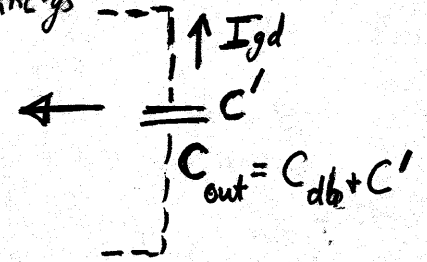 I_gd
C'
C_out = C_db + C'